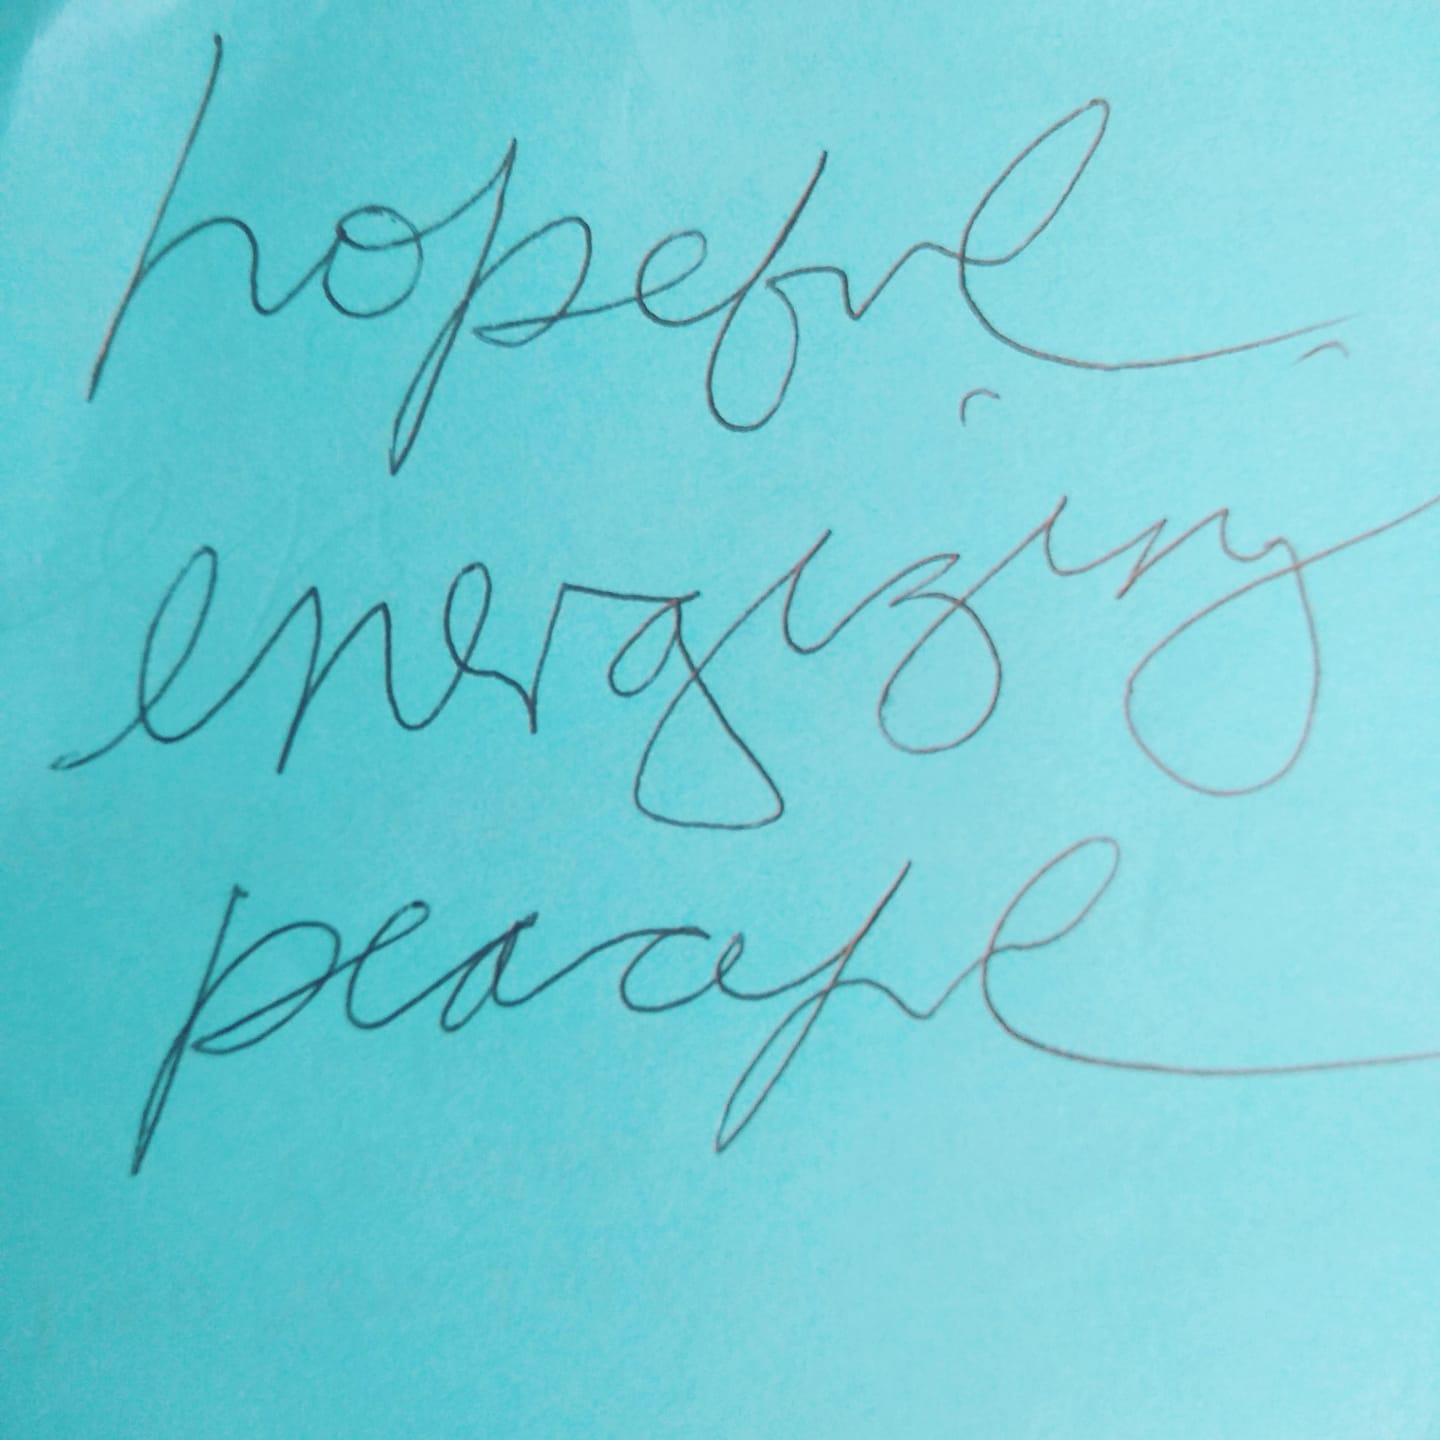 hopeful
energizing
peaceful